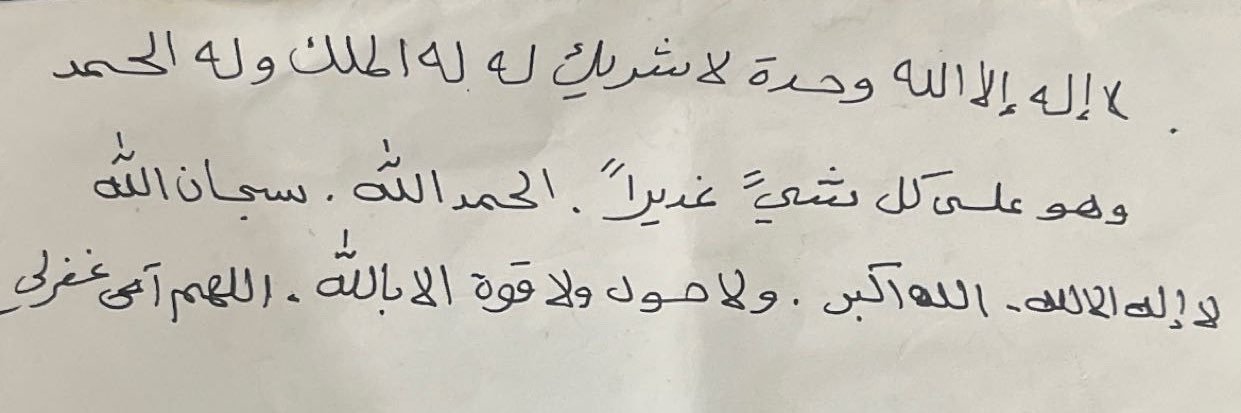 لا إله إلا الله وحدة لا شريك له له الملك وله الحمد .
وهو على كل شيءً غديراً . الحمد الله . سبحان الله
لا إله الا لله . الله أكبر . ولا حول ولا قوة الا بالله . اللهم غفرلي